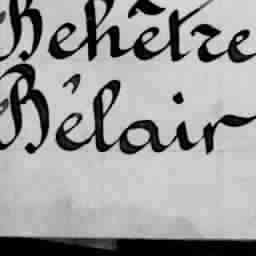 Behêtre
Bélair